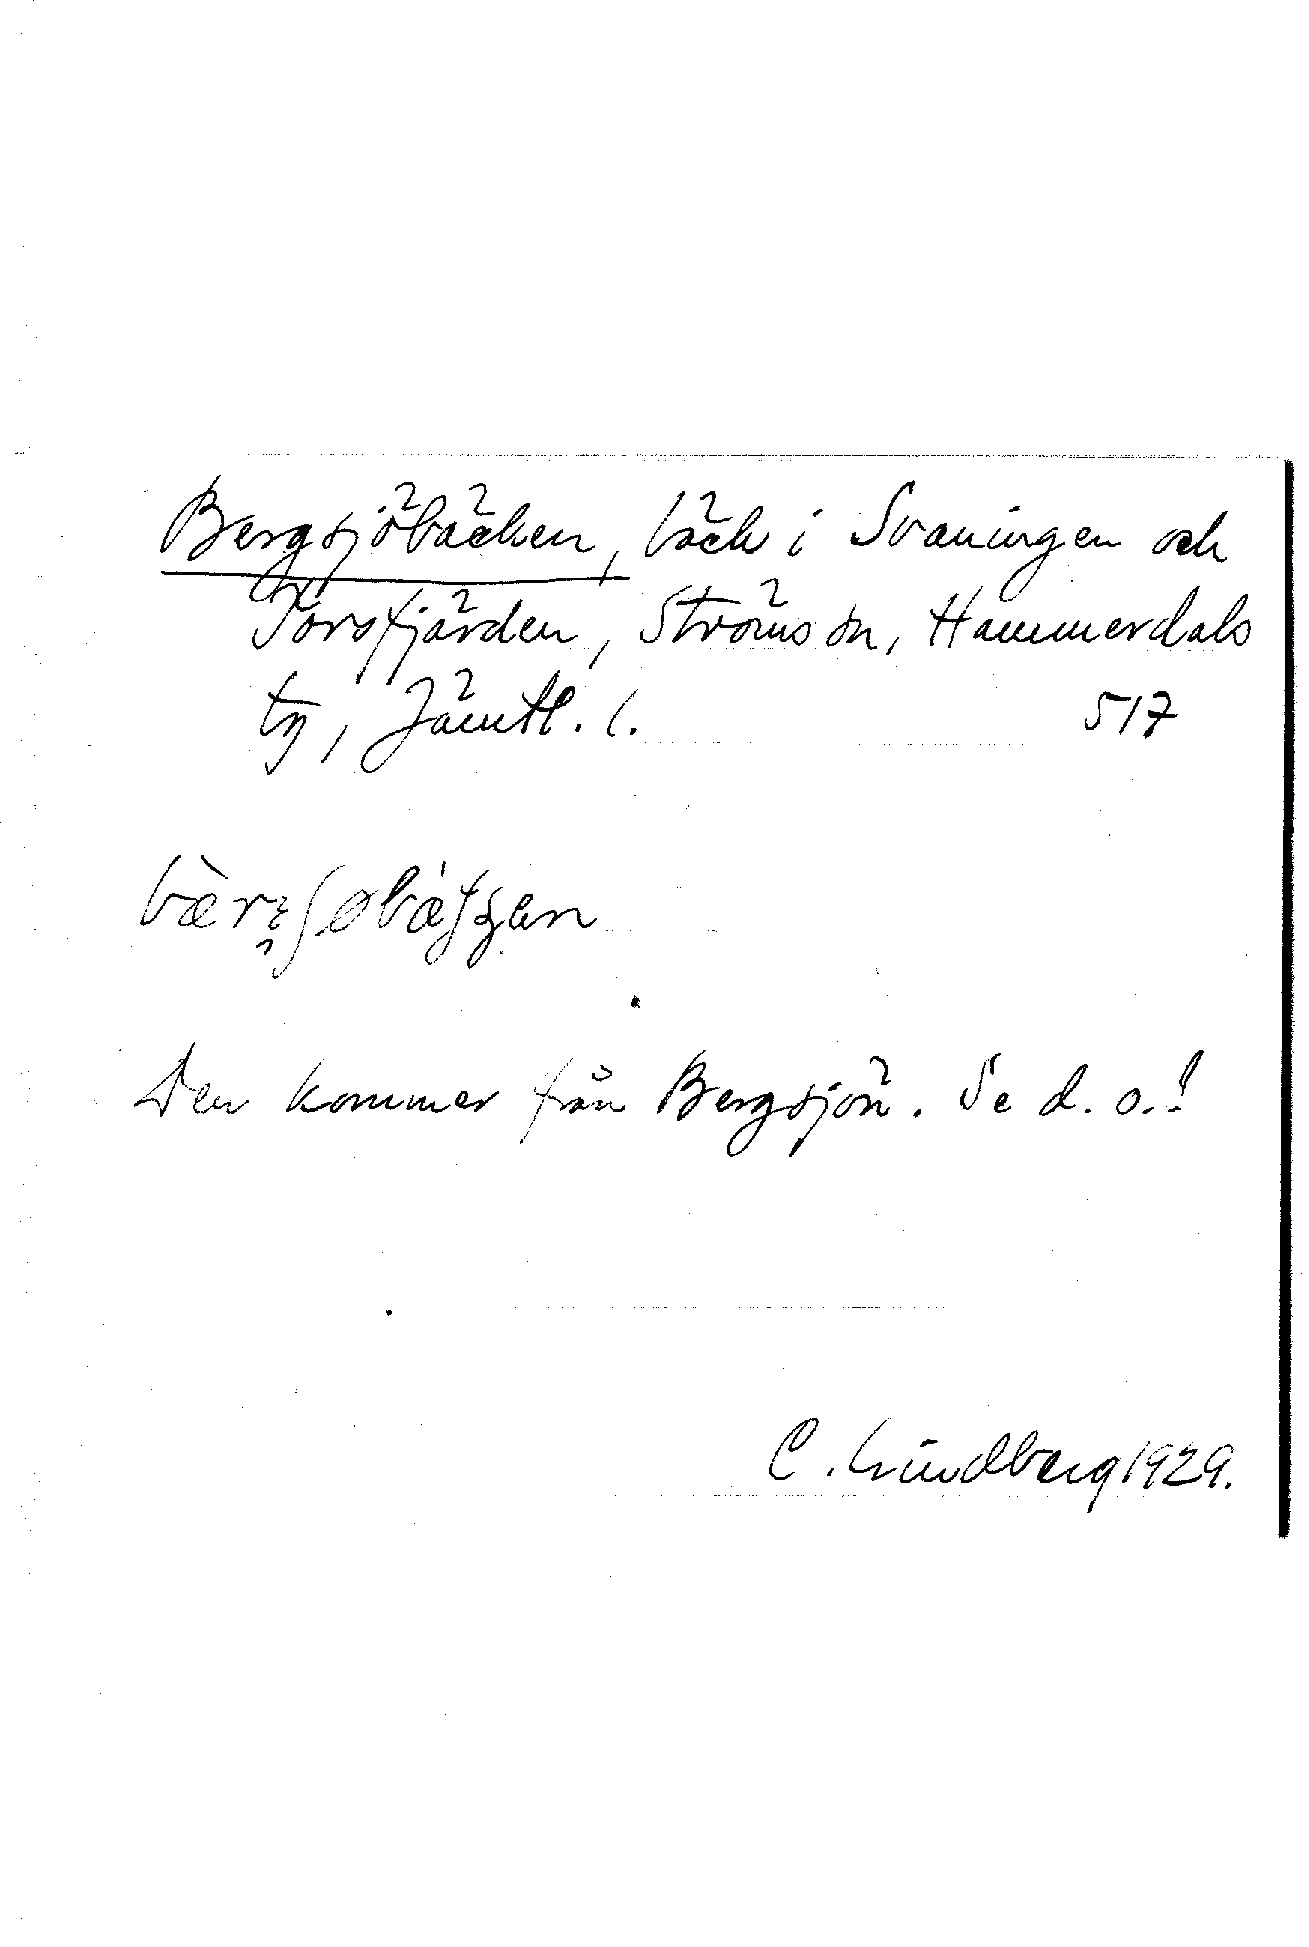 Bergsjöbäcken, bäck i Svaningen och
Torsfjärden, Ströms sn, Hammerdals
tg, Jämtl. l. 517
Den kommer från Bergsjön. Se d. o.!
C. Lindberg 1929.